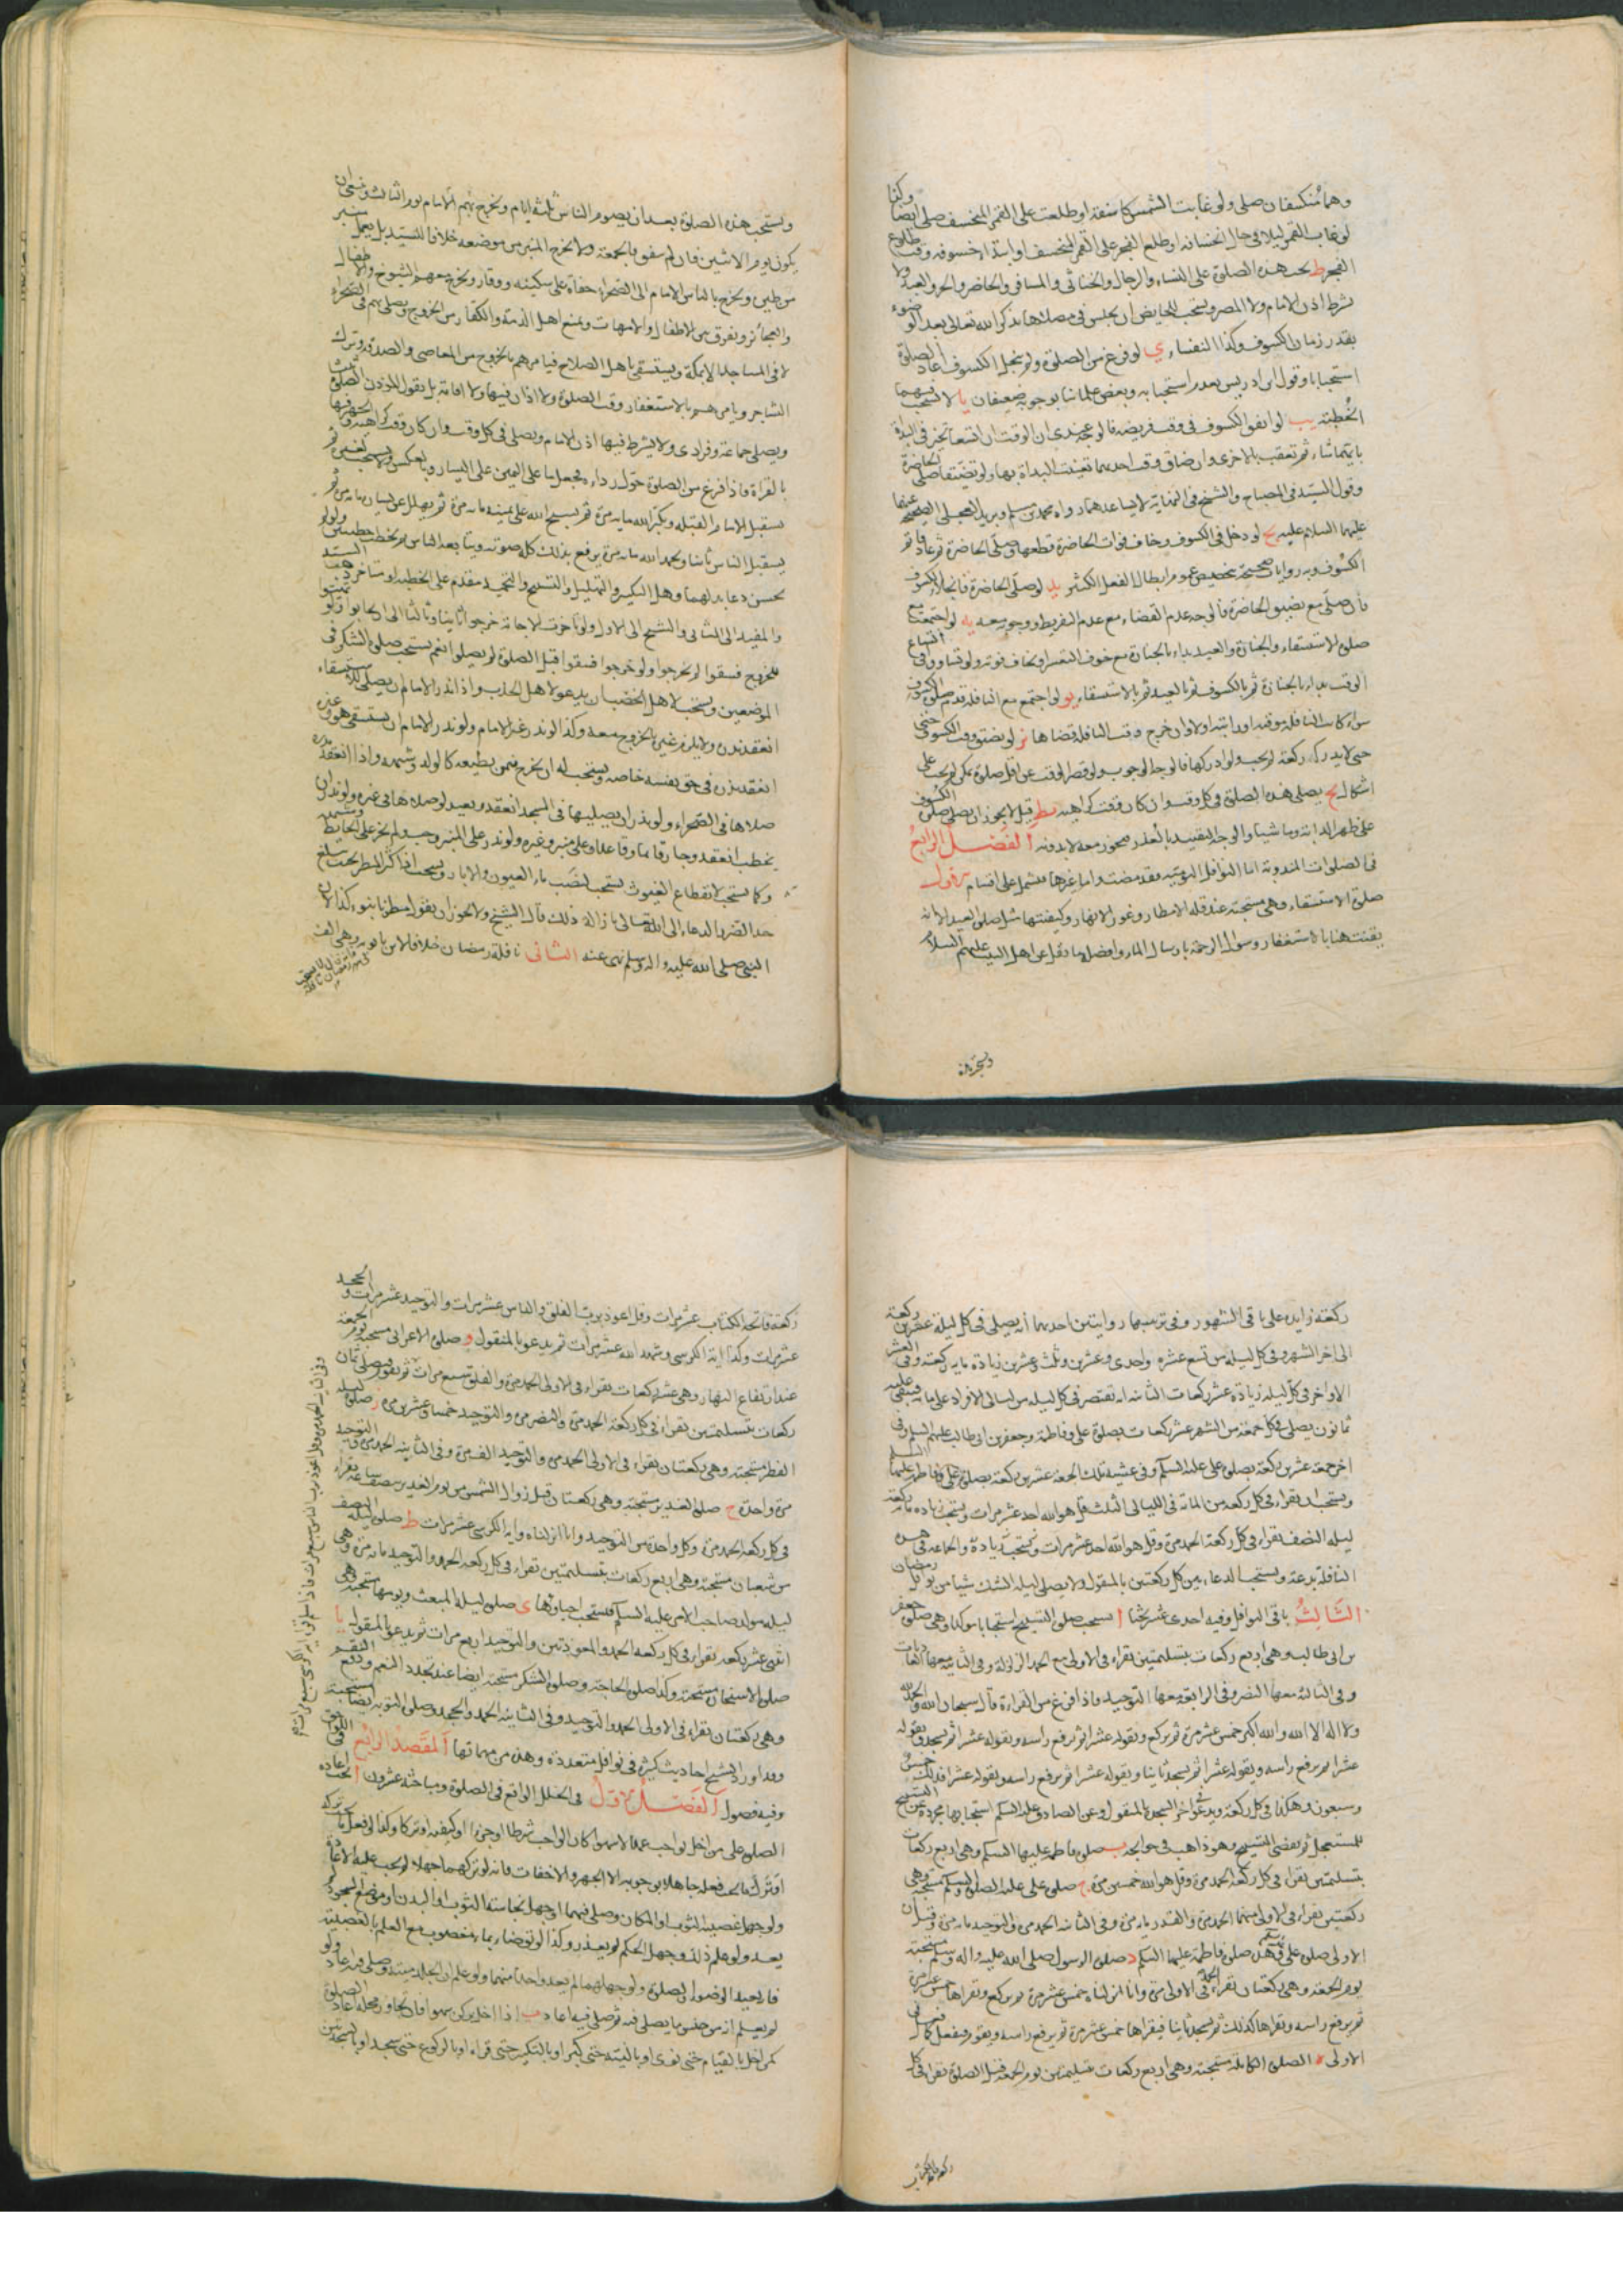 وهما منكسفان صلى ولو غابت الشمس كاسفة او طلعت على القمر المنخسف صلى ايضا وكذا
لو غاب القمر ليلا في حال انخسافه او طلع الفجر على القمر المنخسف او ابتدا خسوفه وقت طلوع
الفجر ط يجب هذه الصلوة على النساء والرجال والخناثى والمسافر والحاضر والحر والعبد ولا
يشرط اذن الامام ولا المصر ويستحب للحايض ان يجلس في مصلاها تذكر الله تعالى بعد الوضوء
بقدر زمان الكسوف وكذا النفساء ي لو فرغ من الصلوة ولم ينجل الكسوف اعاد الصلوة
استحبابا وقول ابن ادريس بعدم استحبابه وبعض علمائنا بوجوبه ضعيفان يا لا يستحب فيهما
الخطبة يب لو اتفق الكسوف في وقت فريضة فالوجه عندي ان الوقت ان اتسع تخير في البداة
بايتهما شاء ثم تعقب بالاخرى وان ضاق وقت احديهما تعينت البداة بها ولو تضيقتا صلى الحاضرة
وقول السيد في المصباح والشيخ في النهاية لا يساعدهما رواه محمد بن مسلم وبريد العجلي الصحيح عنهما
عليهما السلام عليه يج لو دخل في الكسوف وخاف فوات الحاضرة قطعها وصلى الحاضرة ثم عاد فاتم
الكسوف وبه روايات صحيحة تخصيص عموم ابطال الفعل الكثير يد لو صلى الحاضرة فانجلا الكسوف
فان صلى مع تضيق الحاضرة فالوجه عدم القضاء مع عدم التفريط ووجوبه معه يه لو اجتمعت مع
صلوة الاستسقاء والجنازة والعيد بداء بالجنازة مع خوف التغير او يخاف فوته ولو تساووا في اتساع
الوقت بداء بالجنازة ثم بالكسوف ثم بالعيد ثم بالاستسقاء يو لو اجتمع مع النافلة قدم صلوة الكسوف
سواء كانت النافلة موقتة او راتبة اولا وان خرج وقت النافلة قضاها يز لو تضيق وقت الكسوف حتى
حتى لا يدرك ركعة لم يجب ولو ادركها فالوجه الوجوب ولو قصر الوقت عن اقل صلوة يمكن لم يجب على
اشكال يح يصلى هذه الصلوة في كل وقت وان كان وقت كراهية يط قيل يجوز ان يصلى صلوة الكسوف
على ظهر الدابة وماشيا والوجه التقييد بالعذر فيجوز معه لا بدونه الفصل الرابع
في الصلوات المندوبة اما النوافل اليومية فقد مضت واما غيرها فيشمل على اقسام الاول
صلوة الاستسقاء وهي مستحبة عند قلة الامطار وغور الانهار وكيفيتها مثل صلوة العيد الا انه
يقنت هنا بالاستغفار وسوال الرحمة بارسال الماء وافضل ما نقل عن اهل البيت عليهم السلام
ويستحب هذه الصلوة بعد ان يصوم الناس ثلثة ايام ويخرج بهم الامام يوم الثالث وينبغي ان
يكون يوم الاثنين فان لم يتفق فالجمعة ولا يخرج المنبر من موضعه خلافا للسيد بل يعمل منبر
من طين ويخرج بالناس الامام الى الصحراء حفاة على سكينة ووقار ويخرج معهم الشيوخ والاطفال
والعجائز ويفرق بين الاطفال والامهات ويمنع اهل الذمة والكفار من الخروج ويصلى بهم في الصحراء
لا في المساجد الا بمكة ويستسقى باهل الصلاح فيامرهم بالخروج من المعاصي والصدقة وترك
التشاجر ويامرهم بالاستغفار وقت الصلوة ولا اذان فيها ولا اقامة بل يقول المؤذن الصلوة ثلث
ويصلى جماعة وفرادى ولا يشرط فيها اذن الامام ويصلى في كل وقت وان كان وقت كراهية ويجهر فيها
بالقراة فاذا فرغ من الصلوة حول رداءه فجعل ما على اليمين على اليسار وبالعكس ولا يستحب لغيره ثم
يستقبل الامام القبلة ويكبر الله ماية مرة ثم يسبح الله على يمينه ماية مرة ثم يهلل عن يساره ماية مرة ثم
يستقبل الناس ثانيا ويحمد الله ماية مرة يرفع بذلك كله صوته ويتابعه الناس ثم يخطب خطبتين ولو لم
يحسن دعا بدلهما وهل التكبير والتهليل والتسبيح والتحميد مقدم على الخطبة او متاخر السيد
والمفيد الى الثاني والشيخ الى الاول ولو تاخرت الاجابة خرجوا ثانيا وثالثا الى ان يجابوا ولو تهيئوا
للخروج فسقوا لم يخرجوا ولو خرجوا فسقوا قبل الصلوة لم يصلوا نعم يستحب صلوة الشكر في
الموضعين ويستحب لاهل الخصب ان يدعو لاهل الجدب واذا نذر الامام ان يصلى للاستسقاء
انعقد نذره ولا يلزم غيره الخروج معه وكذا لو نذر غير الامام ولو نذر الامام ان يستسقى هو وغيره
انعقد نذره في حق نفسه خاصة ويستحب له ان يخرج فيمن يطيعه كالولد وشبهه واذا انعقد نذره
صلاها في الصحراء ولو نذر ان يصليها في المسجد انعقد ويعيد لو صلاها في غيره ولو نذر ان
يخطب انعقد وجاز قائما وقاعدا وعلى منبر وغيره ولو نذر على المنبر وجب ولم يجز على الحايط وشبهه
وكما يستحب لانقطاع الغيوث يستحب لنضب ماء العيون والابار ويستحب اذا كثر المطر بحيث بلغ
حد الضرر الدعاء الى الله تعالى بازالة ذلك قال الشيخ ولا يجوز ان يقول مطرنا بنوء كذا لان
النبي صلى الله عليه واله وسلم نهى عنه الثاني نافلة رمضان خلافا لابن بابويه وهي الف
ركعة زايدة على باقي الشهور وفي ترتيبها روايتين احديهما انه يصلى في كل ليلة عشرين ركعة
الى اخر الشهر وفي كل ليلة من تسع عشرة واحدى وعشرين وثلث وعشرين زيادة ماية ركعة وفي العشر
الاواخر في كل ليلة زيادة عشر ركعات الثانية انه يقتصر في كل ليلة من ليالي الافراد على ماية فيبقى عليه
ثمانون يصلى في كل جمعة من الشهر عشر ركعات بصلوة علي وفاطمة وجعفر بن ابي طالب عليهم السلم وفي
اخر جمعة عشرين ركعة بصلوة علي عليه السلم وفي عشية تلك الجمعة عشرين ركعة بصلوة علي وفاطمة عليهما السلم
ويستحب ان يقراء في كل ركعة من الماية في الليالي الثلث قل هو الله احد عشر مرات ويستحب زيادة ماية ركعة
ليلة النصف يقراء في كل ركعة الحمد مرة وقل هو الله احد عشر مرات ويستحب زيادة والجماعة في هذه
النافلة بدعة ويستحب الدعاء بين كل ركعتين بالمنقول ولا يصلى ليلة الشك شيا من نوافل رمضان
الثالث باقي النوافل وفيه احدى عشر بحثا ا يستحب صلوة التسبيح استحبابا موكدا وهي صلوة جعفر
بن ابي طالب وهي اربع ركعات بتسليمتين يقراء في الاولى مع الحمد الزلزلة وفي الثانية معها العاديات
وفي الثالثة معها النصر وفي الرابعة معها التوحيد فاذا فرغ من القراءة قال سبحان الله والحمد لله
ولا اله الا الله والله اكبر خمس عشرة مرة ثم يركع ويقوله عشرا ثم يرفع راسه ويقوله عشرا ثم يسجد ويقوله
عشرا ثم يرفع راسه ويقوله عشرا ثم يسجد ثانيا ويقوله عشرا ثم يرفع راسه ويقوله عشرا فذلك خمس
وسبعون وهكذا في كل ركعة ويدعو في اخر السجدة بالمنقول وعن الصادق عليه السلم استحبابها مجردة عن التسبيح
للمستعجل ثم يقضى التسبيح وهو ذاهب في حوايجه ب صلوة فاطمة عليها السلم وهي اربع ركعات
بتسليمتين يقراء في كل ركعة الحمد مرة وقل هو الله خمسين مرة ج صلوة علي عليه الصلوة والسلم مستحبة وهي
ركعتين يقراء في الاولى منهما الحمد مرة والقدر ماية مرة وفي الثانية الحمد مرة والتوحيد ماية مرة وقيل ان
الاولى صلوة علي وهذه صلوة فاطمة عليهما السلم د صلوة الرسول صلى الله عليه واله وسلم مستحبة
يوم الجمعة وهي ركعتان يقراء في الاولى الحمد مرة وانا انزلناه خمس عشرة مرة ثم يركع ويقراها خمس عشرة مرة
ثم يرفع راسه ويقراها كذلك ثم يسجد ثانيا فيقراها خمس عشرة مرة ثم يرفع راسه ويقوم فيفعل في الثانية كما فعل في
الاولى ه الصلوة الكاملة مستحبة وهي اربع ركعات بتسليمتين يوم الجمعة قبل الصلوة يقراء في كل
ركعة فاتحة الكتاب عشر مرات وقل اعوذ برب الفلق والناس عشر مرات والتوحيد عشر مرات والجحد
عشر مرات وكذا اية الكرسي وشهد الله عشر مرات ثم يدعو بالمنقول و صلوة الاعرابي مستحبة يوم الجمعة
عند ارتفاع النهار وهي عشر ركعات يقراء في الاولى الحمد مرة والفلق سبع مرات ثم يقوم فيصلى ثمان
ركعات بتسليمتين يقراء في كل ركعة الحمد مرة والنصر مرة والتوحيد خمسا وعشرين مرة ز صلوة ليلة
الفطر مستحبة وهي ركعتان يقراء في الاولى الحمد مرة والتوحيد الف مرة وفي الثانية الحمد مرة والتوحيد
مرة واحدة ح صلوة الغدير مستحبة وهي ركعتان قبل زوال الشمس من يوم الغدير بنصف ساعة يقراء
في كل ركعة الحمد مرة وكل واحدة من التوحيد وانا انزلناه واية الكرسي عشر مرات ط صلوة ليلة النصف
من شعبان مستحبة وهي اربع ركعات بتسليمتين تقراء في كل ركعة الحمد والتوحيد ماية مرة وهي
ليلة مولد صاحب الامر عليه السلم فيستحب احياؤها ي صلوة ليلة المبعث ويومها مستحبة وهي
اثني عشر ركعة يقراء في كل ركعة الحمد والمعوذتين والتوحيد اربع مرات ثم يدعو بالمنقول يا
صلوة الاستخارة مستحبة وكذا صلوة الحاجة وصلوة الشكر مستحبة ايضا عند تجدد النعم ودفع النقم
وهي ركعتان يقراء في الاولى الحمد والتوحيد وفي الثانية الحمد والجحد وصلوة التوبة ايضا مستحبة
وقد اورد الشيخ احاديث كثيرة في نوافل متعددة وهذه من مهماتها المقصد الرابع في اللواحق
وفيه فصول الفصل الاول في الخلل الواقع في الصلوة ومباحثه عشرون ا يجب اعادة
الصلوة على من اخل بواجب عمدا لا سهوا كان الواجب شرطا او جزءا او كيفية او تركا وكذا لو فعل ما يجب تركه
او ترك ما يجب فعله جاهلا بوجوبه الا الجهر والاخفات فانه لو تركهما جهلا لم يجب عليه الاعادة
ولو جهل غصبية الثوب او المكان وصلى فيهما او جهل نجاسة الثوب او البدن او موضع السجود لم
يعد ولو علم ذلك وجهل الحكم لم يعذر وكذا لو توضاء بماء مغصوب مع العلم بالغصبية
فانه يعيد الوضوء والصلوة ولو جهلهما لم يعد واحدا منهما ولو علم ان الجلد ميتة وصلى فيه اعاد ولو
لم يعلم انه من جنس ما يصلى فيه ثم صلى فيه اعاد ب اذا اخل بركن سهوا فان تجاوز محله اعاد الصلوة
كمن اخل بالقيام حتى نوى او بالنية حتى كبر او بالتكبير حتى قراء او بالركوع حتى سجد او بالسجدتين